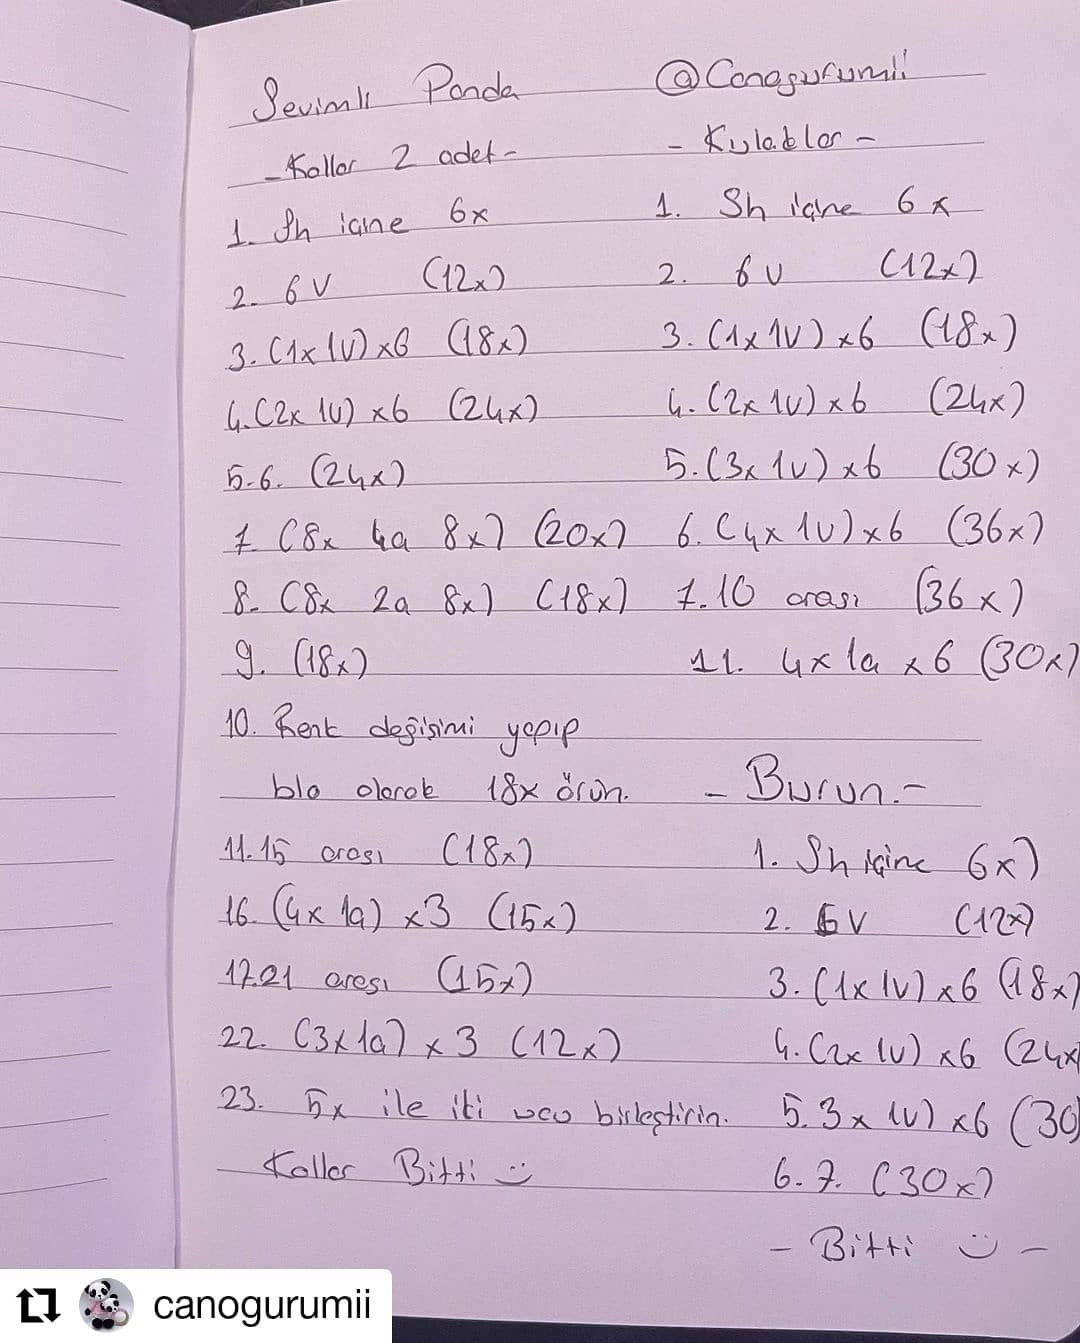 Sevimli Panda
- Kollar 2 adet -
1. Sh içine 6x
2. 6V (12x)
3. (1x 1V) x6 (18x)
4. (2x 1V) x6 (24x)
5-6. (24x)
7 (8x 4a 8x) (20x)
8- (8x 2a 8x) (18x)
9. (18x)
10. Renk değişimi yapıp
blo olarak 18x örün.
11.15 arası (18x)
16. (4x 1a) x3 (15x)
17.21 arası (15x)
22. (3x 1a) x 3 (12x)
23. 5x ile iki ucu birleştirin.
Kollar Bitti :)
@Canogurumii
- Kulaklar -
1. Sh içine 6x
2. 6V (12x)
3. (1x 1V) x6 (18x)
4. (2x 1V) x6 (24x)
5. (3x 1V) x6 (30x)
6. (4x 1V) x6 (36x)
7.10 arası (36x)
11. 4x 1a x6 (30x)
- Burun. -
1. Sh içine 6x)
2. 6V (12x)
3. (1x 1V) x6 (18x)
4. (2x 1V) x6 (24x)
5. 3x 1V) x6 (30
6. 7. (30x)
- Bitti :) -
canogurumii